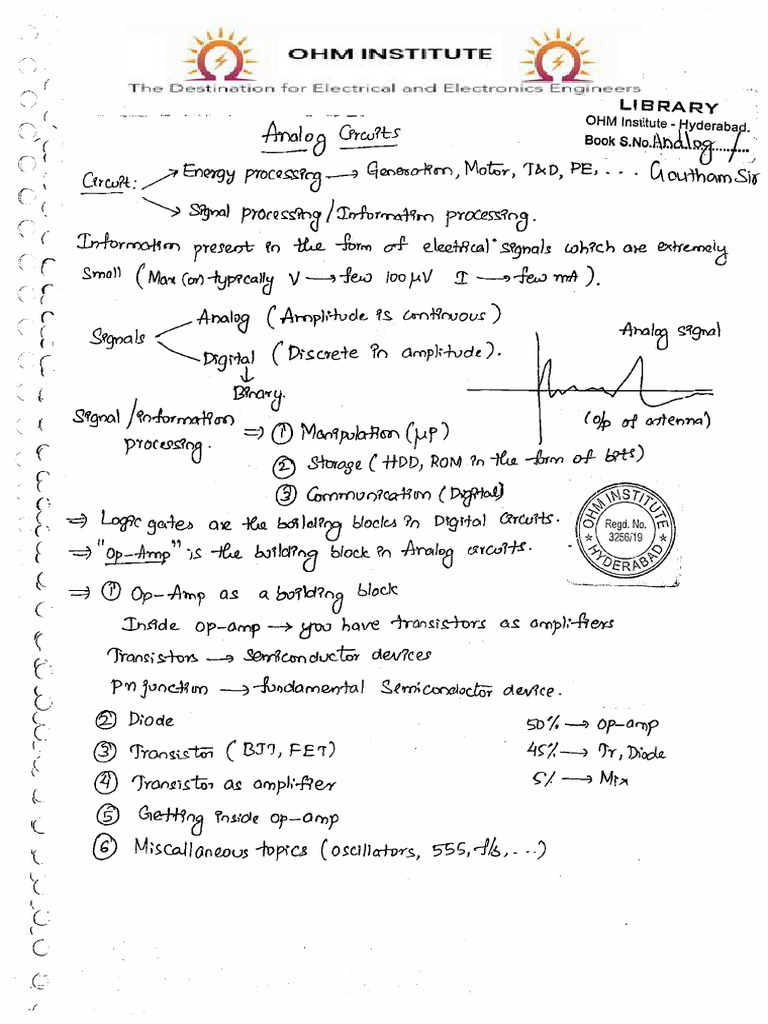 OHM INSTITUTE
The Destination for Electrical and Electronics Engineers
LIBRARY
OHM Institute - Hyderabad.
Book S.No. Analog 1
Analog Circuits
Gautham Sir
Circuit: → Energy processing → Generation, Motor, T&D, PE, ...
→ Signal processing / Information processing.
Information present in the form of electrical signals which are extremely
small (Max (or) typically V → few 100 μV I → few mA).
Signals Analog (Amplitude is continuous)
Digital (Discrete in amplitude).
↓
Binary.
Analog signal
(o/p of antenna)
Signal / information
processing. ⇒ ① Manipulation (μP)
② Storage (HDD, ROM in the form of bits)
③ Communication (Digital)
⇒ Logic gates are the building blocks in Digital circuits.
⇒ "Op-Amp" is the building block in Analog circuits.
OHM INSTITUTE
Regd. No.
3256/19
HYDERABAD
⇒ ① Op-Amp as a building block
Inside op-amp → you have transistors as amplifiers
Transistors → semiconductor devices
Pn junction → fundamental Semiconductor device.
② Diode
③ Transistor (BJT, FET)
④ Transistor as amplifier
⑤ Getting inside op-amp
⑥ Miscallaneous topics (oscillators, 555, f/b, ...)
50% → op-amp
45% → Tr, Diode
5% → Mix